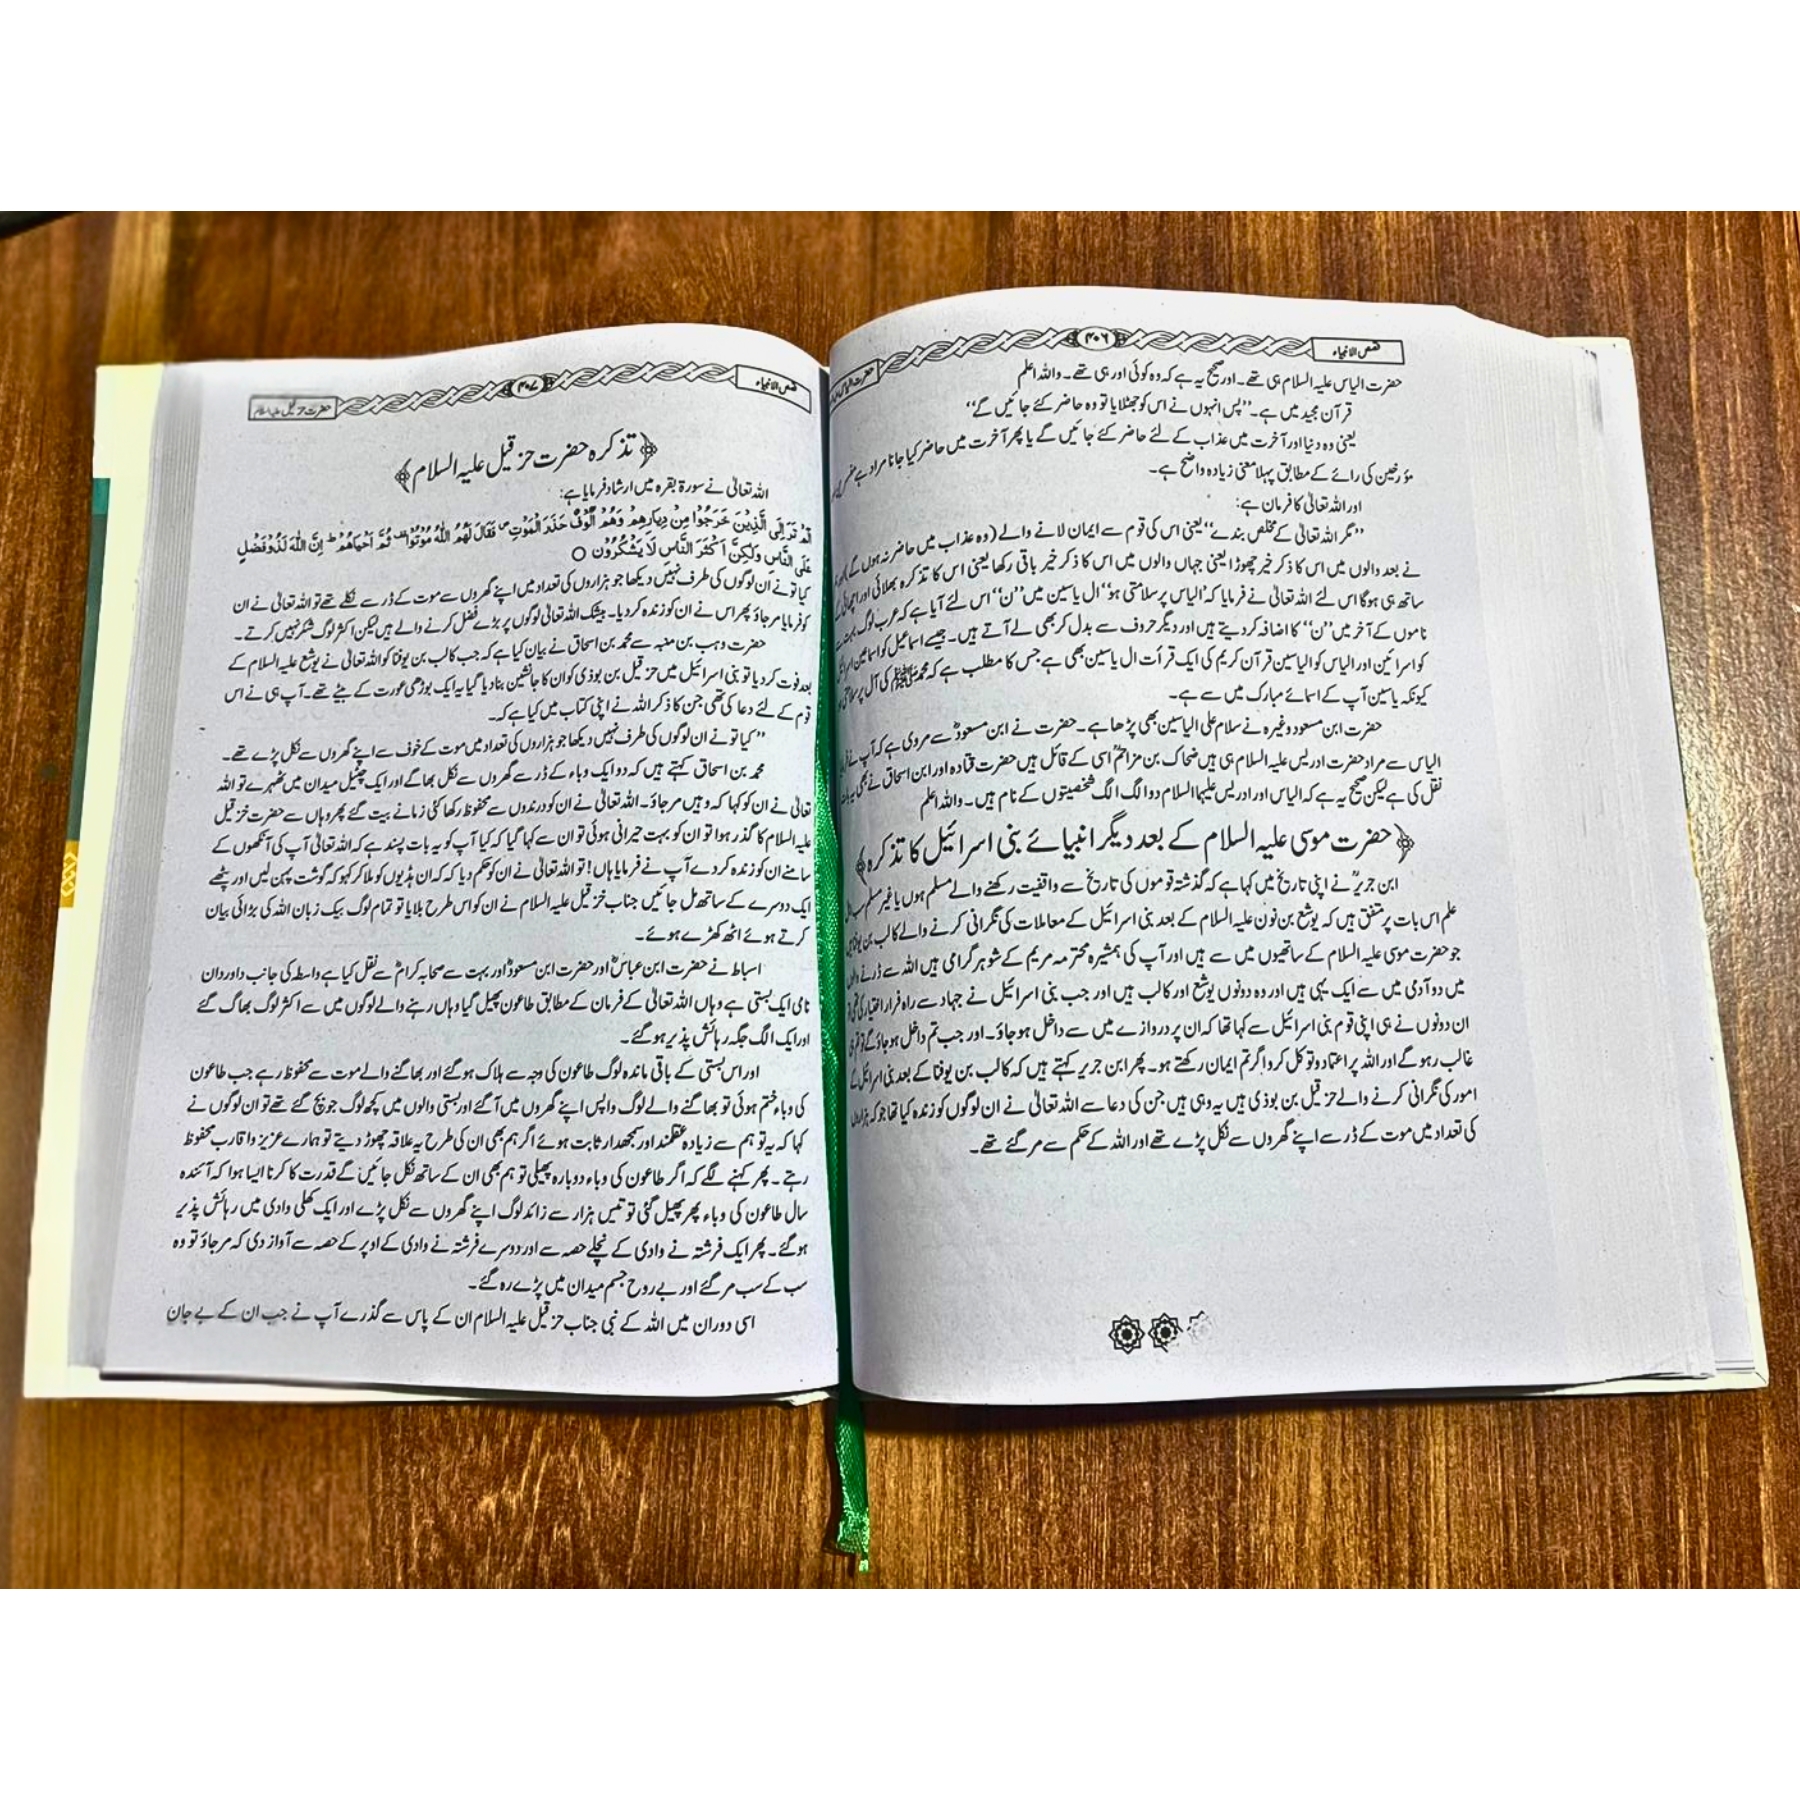 قصص الانبیاء
۴۰۶
حضرت الیاس علیہ السلام ہی تھے۔ اور صحیح یہ ہے کہ وہ کوئی اور ہی تھے۔ واللہ اعلم
قرآن مجید میں ہے۔ ”پس انہوں نے اس کو جھٹلایا تو وہ حاضر کئے جائیں گے“
یعنی وہ دنیا اور آخرت میں عذاب کے لئے حاضر کئے جائیں گے یا پھر آخرت میں حاضر کیا جانا مراد ہے
مؤرخین کی رائے کے مطابق پہلا معنی زیادہ واضح ہے۔
اور اللہ تعالیٰ کا فرمان ہے:
”مگر اللہ تعالیٰ کے مخلص بندے“ یعنی اس کی قوم سے ایمان لانے والے (وہ عذاب میں حاضر نہ ہوں گے)
نے بعد والوں میں اس کا ذکر خیر چھوڑا یعنی جہاں والوں میں اس کا ذکر خیر باقی رکھا یعنی اس کا تذکرہ بھلائی اور اچھائی کے
ساتھ ہی ہوگا اس لئے اللہ تعالیٰ نے فرمایا کہ ’الیاس پر سلامتی ہو‘ ال یاسین میں ”ن“ اس لئے آیا ہے کہ عرب لوگ بہت سے
ناموں کے آخر میں ”ن“ کا اضافہ کر دیتے ہیں اور دیگر حروف سے بدل کر بھی لے آتے ہیں۔ جیسے اسماعیل کو اسماعین اسرائیل
کو اسرائین اور الیاس کو الیاسین قرآن کریم کی ایک قرأت ال یاسین بھی ہے جس کا مطلب ہے کہ محمد ﷺ کی آل پر سلامتی ہو
کیونکہ یاسین آپ کے اسمائے مبارک میں سے ہے۔
حضرت ابن مسعود وغیرہ نے سلام علی الیاسین بھی پڑھا ہے۔ حضرت نے ابن مسعودؓ سے مروی ہے کہ آپ نے فرمایا
الیاس سے مراد حضرت ادریس علیہ السلام ہی ہیں ضحاک بن مزاحمؒ اسی کے قائل ہیں حضرت قتادہ اور ابن اسحاق نے بھی یہ بات
نقل کی ہے لیکن صحیح یہ ہے کہ الیاس اور ادریس علیہما السلام دو الگ الگ شخصیتوں کے نام ہیں۔ واللہ اعلم
﴿حضرت موسی علیہ السلام کے بعد دیگر انبیائے بنی اسرائیل کا تذکرہ﴾
ابن جریرؒ نے اپنی تاریخ میں کہا ہے کہ گذشتہ قوموں کی تاریخ سے واقفیت رکھنے والے مسلم ہوں یا غیر مسلم سب اہل
علم اس بات پر متفق ہیں کہ یوشع بن نون علیہ السلام کے بعد بنی اسرائیل کے معاملات کی نگرانی کرنے والے کالب بن یوفنا ہیں
جو حضرت موسی علیہ السلام کے ساتھیوں میں سے ہیں اور آپ کی ہمشیرہ محترمہ مریم کے شوہر گرامی ہیں اللہ سے ڈرنے والوں
میں دو آدمی میں سے ایک یہی ہیں اور وہ دونوں یوشع اور کالب ہیں اور جب بنی اسرائیل نے جہاد سے راہ فرار اختیار کی تھی تو
ان دونوں نے ہی اپنی قوم بنی اسرائیل سے کہا تھا کہ ان پر دروازے میں سے داخل ہو جاؤ۔ اور جب تم داخل ہو جاؤ گے تو تم ہی
غالب رہو گے اور اللہ پر اعتماد و توکل کرو اگر تم ایمان رکھتے ہو۔ پھر ابن جریر کہتے ہیں کہ کالب بن یوفنا کے بعد بنی اسرائیل کے
امور کی نگرانی کرنے والے حزقیل بن بوذی ہیں یہ وہی ہیں جن کی دعا سے اللہ تعالیٰ نے ان لوگوں کو زندہ کیا تھا جو کہ ہزاروں
کی تعداد میں موت کے ڈر سے اپنے گھروں سے نکل پڑے تھے اور اللہ کے حکم سے مر گئے تھے۔
قصص الانبیاء
۴۰۷
حضرت حزقیل علیہ السلام
﴿تذکرہ حضرت حزقیل علیہ السلام﴾
اللہ تعالیٰ نے سورۃ بقرہ میں ارشاد فرمایا ہے:
اَلَمْ تَرَ اِلَی الَّذِیْنَ خَرَجُوْا مِنْ دِیَارِهِمْ وَهُمْ اُلُوْفٌ حَذَرَ الْمَوْتِ ص فَقَالَ لَهُمُ اللّٰهُ مُوْتُوْا قف ثُمَّ اَحْیَاهُمْ ط اِنَّ اللّٰهَ لَذُوْ فَضْلٍ
عَلَی النَّاسِ وَلٰکِنَّ اَکْثَرَ النَّاسِ لَا یَشْکُرُوْنَ ○
کیا تو نے ان لوگوں کی طرف نہیں دیکھا جو ہزاروں کی تعداد میں اپنے گھروں سے موت کے ڈر سے نکلے تھے تو اللہ تعالیٰ نے ان
کو فرمایا مر جاؤ پھر اس نے ان کو زندہ کر دیا۔ بیشک اللہ تعالیٰ لوگوں پر بڑے فضل کرنے والے ہیں لیکن اکثر لوگ شکر نہیں کرتے۔
حضرت وہب بن منبہ سے محمد بن اسحاق نے بیان کیا ہے کہ جب کالب بن یوفنا کو اللہ تعالیٰ نے یوشع علیہ السلام کے
بعد فوت کر دیا تو بنی اسرائیل میں حزقیل بن بوذی کو ان کا جانشین بنا دیا گیا یہ ایک بوڑھی عورت کے بیٹے تھے۔ آپ ہی نے اس
قوم کے لئے دعا کی تھی جن کا ذکر اللہ نے اپنی کتاب میں کیا ہے کہ۔
”کیا تو نے ان لوگوں کی طرف نہیں دیکھا جو ہزاروں کی تعداد میں موت کے خوف سے اپنے گھروں سے نکل پڑے تھے۔
محمد بن اسحاق کہتے ہیں کہ دو ایک وباء کے ڈر سے گھروں سے نکل بھاگے اور ایک چٹیل میدان میں ٹھہرے تو اللہ
تعالیٰ نے ان کو کہا کہ وہیں مر جاؤ۔ اللہ تعالیٰ نے ان کو درندوں سے محفوظ رکھا کئی زمانے بیت گئے پھر وہاں سے حضرت حزقیل
علیہ السلام کا گذر ہوا تو ان کو بہت حیرانی ہوئی تو ان سے کہا گیا کہ کیا آپ کو یہ بات پسند ہے کہ اللہ تعالیٰ آپ کی آنکھوں کے
سامنے ان کو زندہ کر دے آپ نے فرمایا ہاں! تو اللہ تعالیٰ نے ان کو حکم دیا کہ کہ ان ہڈیوں کو ملا کر کہو کہ گوشت پہن لیں اور پٹھے
ایک دوسرے کے ساتھ مل جائیں جناب خزقیل علیہ السلام نے ان کو اس طرح بلایا تو تمام لوگ بیک زبان اللہ کی بڑائی بیان
کرتے ہوئے اٹھ کھڑے ہوئے۔
اسباط نے حضرت ابن عباسؓ اور حضرت ابن مسعودؓ اور بہت سے صحابہ کرامؓ سے نقل کیا ہے واسطہ کی جانب داوردان
نامی ایک بستی ہے وہاں اللہ تعالیٰ کے فرمان کے مطابق طاعون پھیل گیا وہاں رہنے والے لوگوں میں سے اکثر لوگ بھاگ گئے
اور ایک الگ جگہ رہائش پذیر ہو گئے۔
اور اس بستی کے باقی ماندہ لوگ طاعون کی وجہ سے ہلاک ہو گئے اور بھاگنے والے موت سے محفوظ رہے جب طاعون
کی وباء ختم ہوئی تو بھاگنے والے لوگ واپس اپنے گھروں میں آگئے اور بستی والوں میں کچھ لوگ جو بچ گئے تھے تو ان لوگوں نے
کہا کہ یہ تو ہم سے زیادہ عقلمند اور سمجھدار ثابت ہوئے اگر ہم بھی ان کی طرح یہ علاقہ چھوڑ دیتے تو ہمارے عزیز و اقارب محفوظ
رہتے۔ پھر کہنے لگے کہ اگر طاعون کی وباء دوبارہ پھیلی تو ہم بھی ان کے ساتھ نکل جائیں گے قدرت کا کرنا ایسا ہوا کہ آئندہ
سال طاعون کی وباء پھر پھیل گئی تو تیس ہزار سے زائد لوگ اپنے گھروں سے نکل پڑے اور ایک کھلی وادی میں رہائش پذیر
ہو گئے۔ پھر ایک فرشتہ نے وادی کے نچلے حصہ سے اور دوسرے فرشتہ نے وادی کے اوپر کے حصہ سے آواز دی کہ مر جاؤ تو وہ
سب کے سب مر گئے اور بے روح جسم میدان میں پڑے رہ گئے۔
اسی دوران میں اللہ کے نبی جناب حزقیل علیہ السلام ان کے پاس سے گذرے آپ نے جب ان کے بے جان